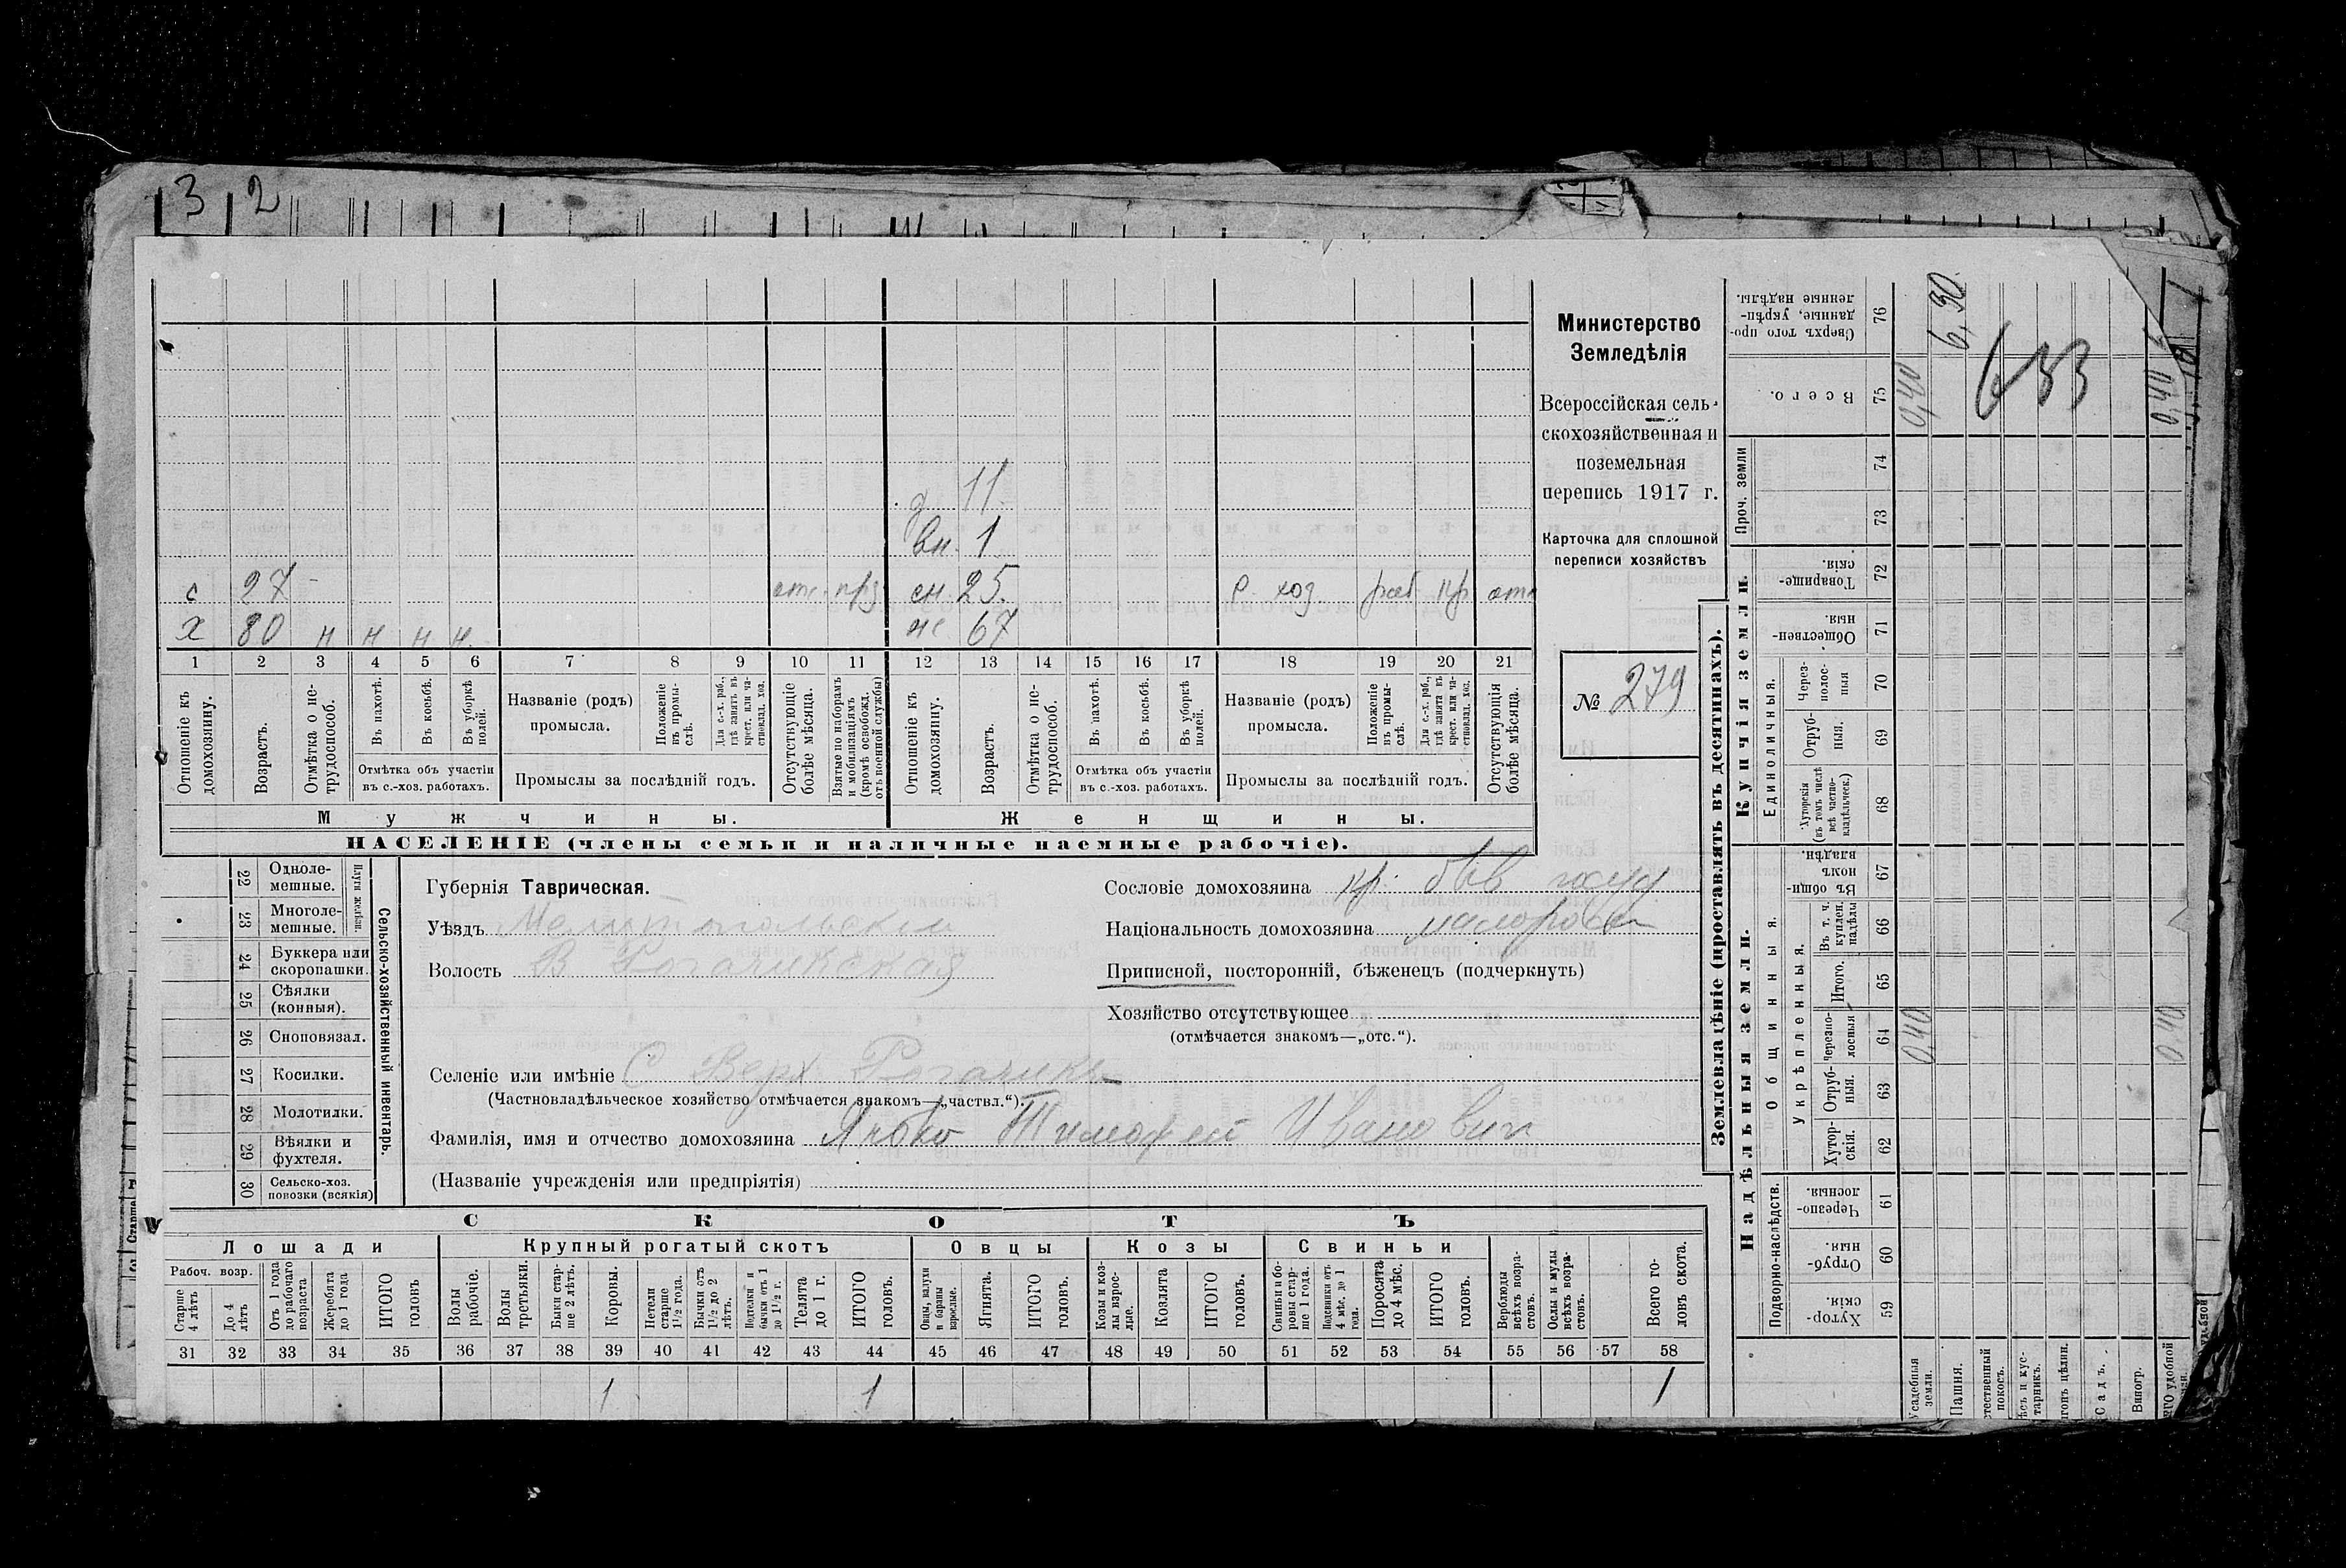 3 2
Министерство
Земледѣлія
Всероссійская сель-
скохозяйственная и
поземельная
перепись 1917 г.
Карточка для сплошной
переписи хозяйствъ
№ 279
д 11
вн. 1
с 27 отс. прз сн. 25. р. хоз раб кр отс
х 80 н н н н. же 67
1 2 3 4 5 6 7 8 9 10 11 12 13 14 15 16 17 18 19 20 21
Отношеніе къ домохозяину.
Возрастъ.
Отмѣтка о не-трудоспособ.
Въ пахотѣ.
Въ косьбѣ.
Въ уборкѣ полей.
Отмѣтка объ участіи
въ с.-хоз. работахъ.
Названіе (родъ)
промысла.
Положеніе въ промы-слѣ.
Для с.-х. раб., гдѣ занятъ въ крест. или ча-стновлад. хоз.
Промыслы за послѣдній годъ.
Отсутствующіе болѣе мѣсяца.
Взятые по наборамъ и мобилизаціямъ (кромѣ освобожд. отъ военной службы)
Отношеніе къ домохозяину.
Возрастъ.
Отмѣтка о не-трудоспособ.
Въ пахотѣ.
Въ косьбѣ.
Въ уборкѣ полей.
Отмѣтка объ участіи
въ с.-хоз. работахъ.
Названіе (родъ)
промысла.
Положеніе въ промы-слѣ.
Для с.-х. раб., гдѣ занята въ крест. или ча-стновлад. хоз.
Промыслы за послѣдній годъ.
Отсутствующія болѣе мѣсяца.
Мужчины. Женщины.
НАСЕЛЕНІЕ (члены семьи и наличные наемные рабочіе).
22 Одноле-мешные.
23 Многоле-мешные.
Плуги желѣзн.
24 Буккера или скоропашки.
25 Сѣялки (конныя).
26 Сноповязал.
27 Косилки.
28 Молотилки.
29 Вѣялки и фухтеля.
30 Сельско-хоз. повозки (всякія)
Сельско-хозяйственный инвентарь.
Губернія Таврическая.
Уѣздъ Мелитопольскій
Волость В Рогачикская
Сословіе домохозяина кр. быв госуд
Національность домохозяина малоросс
Приписной, посторонній, бѣженецъ (подчеркнуть)
Хозяйство отсутствующее
(отмѣчается знакомъ—„отс.“).
Селеніе или имѣніе С Верх Рогачикъ
(Частновладѣльческое хозяйство отмѣчается знакомъ—„частвл.“).
Фамилія, имя и отчество домохозяина Тимофей Иванович
(Названіе учрежденія или предпріятія)
СКОТЪ
Лошади Крупный рогатый скотъ Овцы Козы Свиньи
Рабоч. возр.
Старше 4 лѣтъ
До 4 лѣтъ
Отъ 1 года до рабочаго возраста
Жеребята до 1 года
ИТОГО головъ
Волы рабочіе.
Волы третьяки.
Быки стар-ше 2 лѣтъ.
Коровы.
Нетели старше 1½ года.
Бычки отъ 1½ до 2 лѣтъ.
Подтелки и бычки отъ 1 до 1½ г.
Телята до 1 г.
ИТОГО головъ.
Овцы, валухи и бараны взрослые.
Ягнята.
ИТОГО головъ.
Козы и коз-лы взрос-лые.
Козлята
ИТОГО головъ.
Свиньи и бо-ровы стар-ше 1 года.
Подсвинки отъ 4 мѣс. до 1 года.
Поросята до 4 мѣс.
ИТОГО головъ.
Верблюды всѣхъ возра-стовъ.
Ослы и мулы всѣхъ возра-стовъ.
Всего го-ловъ скота.
31 32 33 34 35 36 37 38 39 40 41 42 43 44 45 46 47 48 49 50 51 52 53 54 55 56 57 58
1 1 1
Землевладѣніе (проставлять въ десятинахъ).
Надѣльныя земли. Купчія земли.
Подворно-наслѣдств.
Общинныя.
Укрѣпленныя.
Единоличныя.
Проч. земли
Сверхъ того про-данные, укрѣп-ленные надѣлы. 76 6,30
Всего. 75 0,40 0,40
633
74
73
Товарище-скія. 72
Обществен-ныя. 71
Через-полос-ныя 70
Отруб-ныя. 69
Хуторскія (въ томъ числѣ всѣ частно-владѣльческ.) 68
Въ общин-номъ владѣн. 67
Въ т. ч. куплен. надѣлы 66
Итого. 65
Черезпо-лосныя 64 0,40 0,40
Отруб-ныя. 63
Хутор-скія. 62
Черезпо-лосныя. 61
Отруб-ныя. 60
Хутор-скія. 59
Усадебныя земли.
Пашня.
стественный покосъ.
ѣсъ и кус-тарникъ.
гонъ цѣлин.
Садъ.
Виногр.
ГО удобной